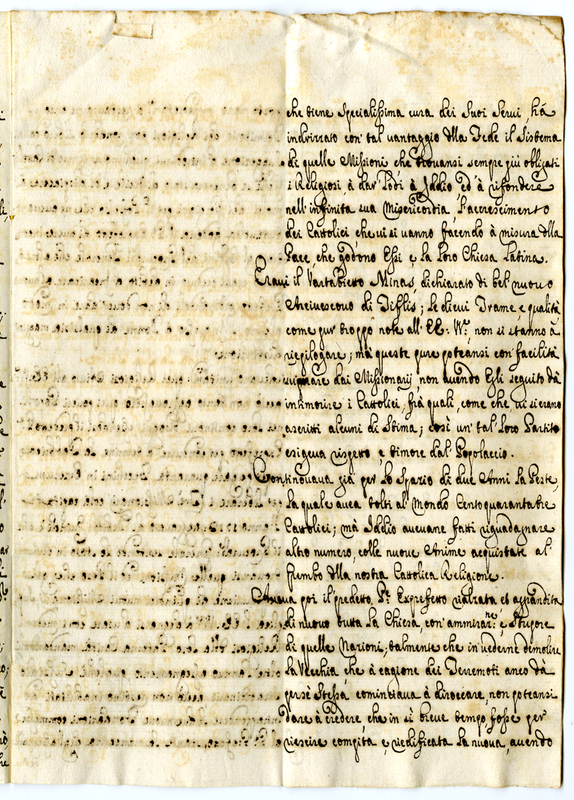 che tiene Specialissima cura dei Suoi Servi, há
indirizzato con' tal vantaggio dlla Fede il Sistema
di quelle Missioni, che trovansi sempre più obligati
i Religiosi à dar' Lodi à Iddio ed' à rifondere
nell'infinita sua Misericordia, l'accrescimento
dei Cattolici che vi si vanno facendo à misura dlla
Pace, che godono Essi, e la Loro Chiesa Latina.
Eravi il Vartabietto Minas, dichiarato di bel' nuovo
Arcivescovo di Tifflis; Le di cui Trame, e qualità
come pur' troppo note all' EE. VV. non si stanno à
riepilogare; mà queste pure poteansi con' facilità
dai Missionarij, non avendo Egli seguito dà
intimorire i Cattolici, frà quali, come che vi si erano
ascritti alcuni di Stima; così un' tal' Loro Partito
esigeva rispetto, e timore dal' Popolaccio.
Continovava già per lo Spazio di due Anni la Peste,
la quale avea tolti al Mondo Centoquarantatre
Cattolici; mà Iddio aveuane fatti riguadagnare
altro numero, colle nuove Anime acquistate al'
Grembo dlla nostra Cattolica Religione.
Aveva poi il predetto P. Exprefetto rialzata, et aggrandita
di nuovo tutta la Chiesa, con' ammiraz.ne, e Stupore
di quelle Nazioni; talmente che in vederne demolire
la Vecchia che à cagione dei Terremoti anco dà
persè Stessa cominciava à diroccare, non poteansi
dare à credere, che in sì breve tempo, fosse per
riescire compita, e riedificata la nuova, avendo